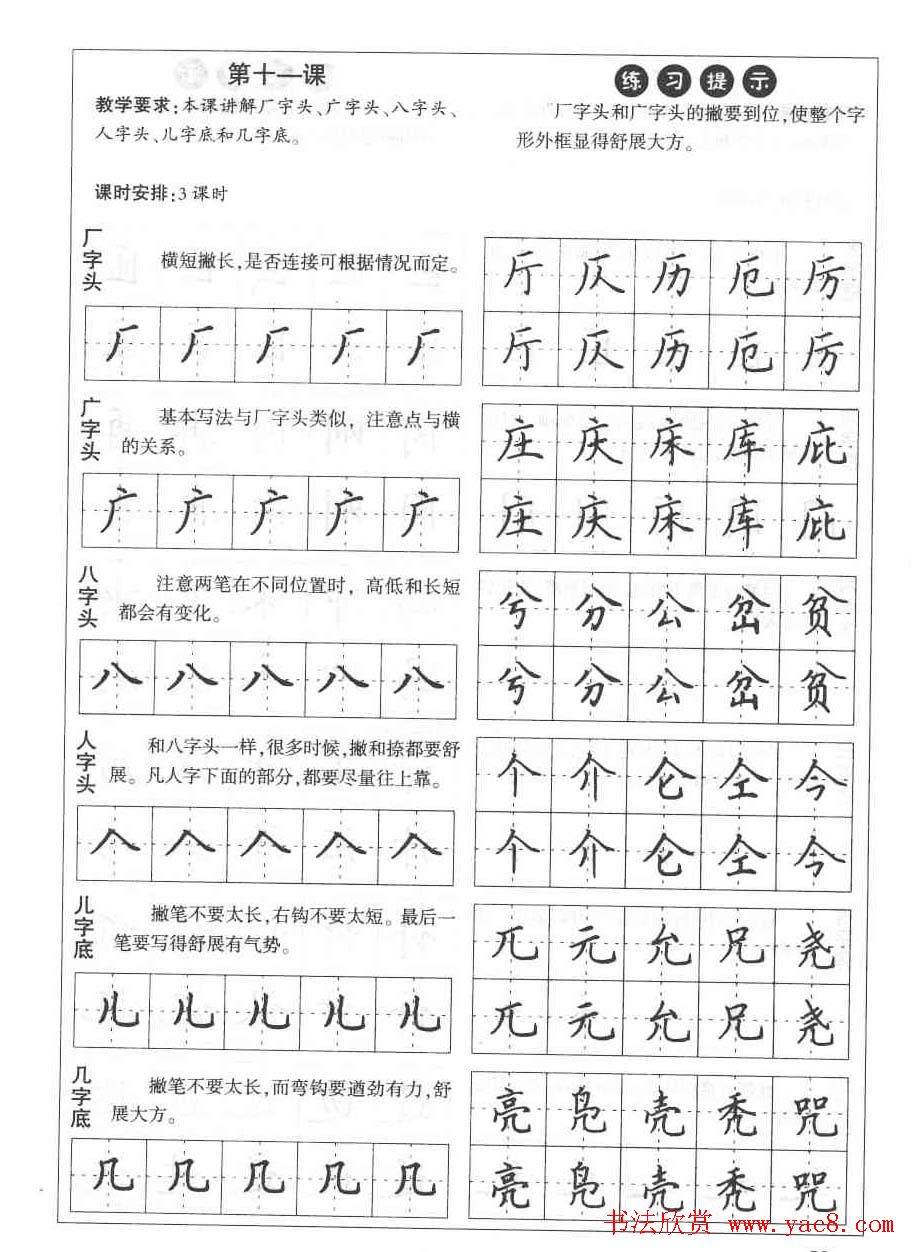 第十一课
教学要求:本课讲解厂字头、广字头、八字头、
人字头、儿字底和几字底。
课时安排:3课时
练习提示
厂字头和广字头的撇要到位,使整个字
形外框显得舒展大方。
厂字头
横短撇长,是否连接可根据情况而定。
厂厂厂厂厂
厅仄历厄厉
厅仄历厄厉
广字头
基本写法与厂字头类似,注意点与横
的关系。
广广广广广
庄庆床库庇
庄庆床库庇
八字头
注意两笔在不同位置时,高低和长短
都会有变化。
八八八八八
兮分公岔贫
兮分公岔贫
人字头
和八字头一样,很多时候,撇和捺都要舒
展。凡人字下面的部分,都要尽量往上靠。
人人人人人
个介仑仝今
个介仑仝今
儿字底
撇笔不要太长,右钩不要太短。最后一
笔要写得舒展有气势。
儿儿儿儿儿
兀元允兄尧
兀元允兄尧
几字底
撇笔不要太长,而弯钩要遒劲有力,舒
展大方。
几几几几几
亮凫壳秃咒
亮凫壳秃咒
书法欣赏 www.yac8.com